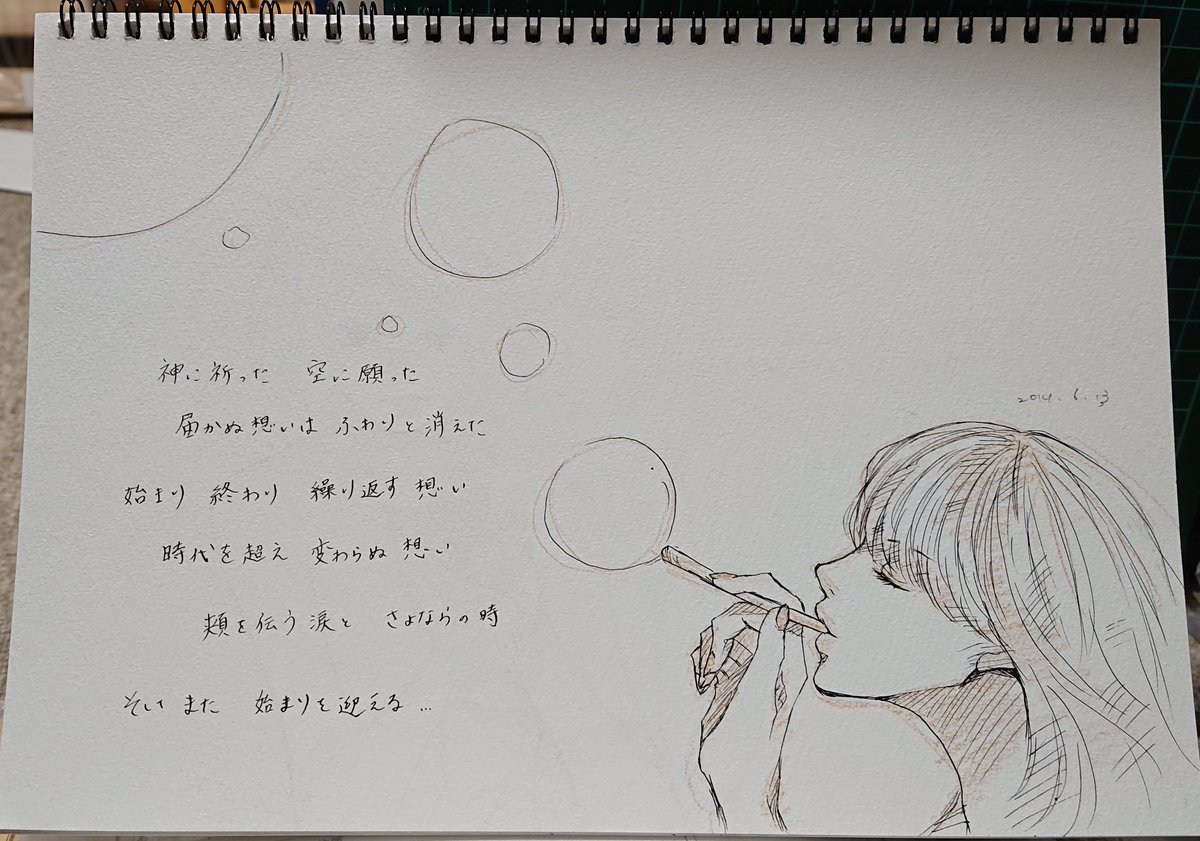 神に祈った 空に願った
届かぬ想いは ふわりと消えた
始まり 終わり 繰り返す想い
時代を超え 変わらぬ想い
頬を伝う涙と さよならの時
そしてまた 始まりを迎える...
2014.6.13